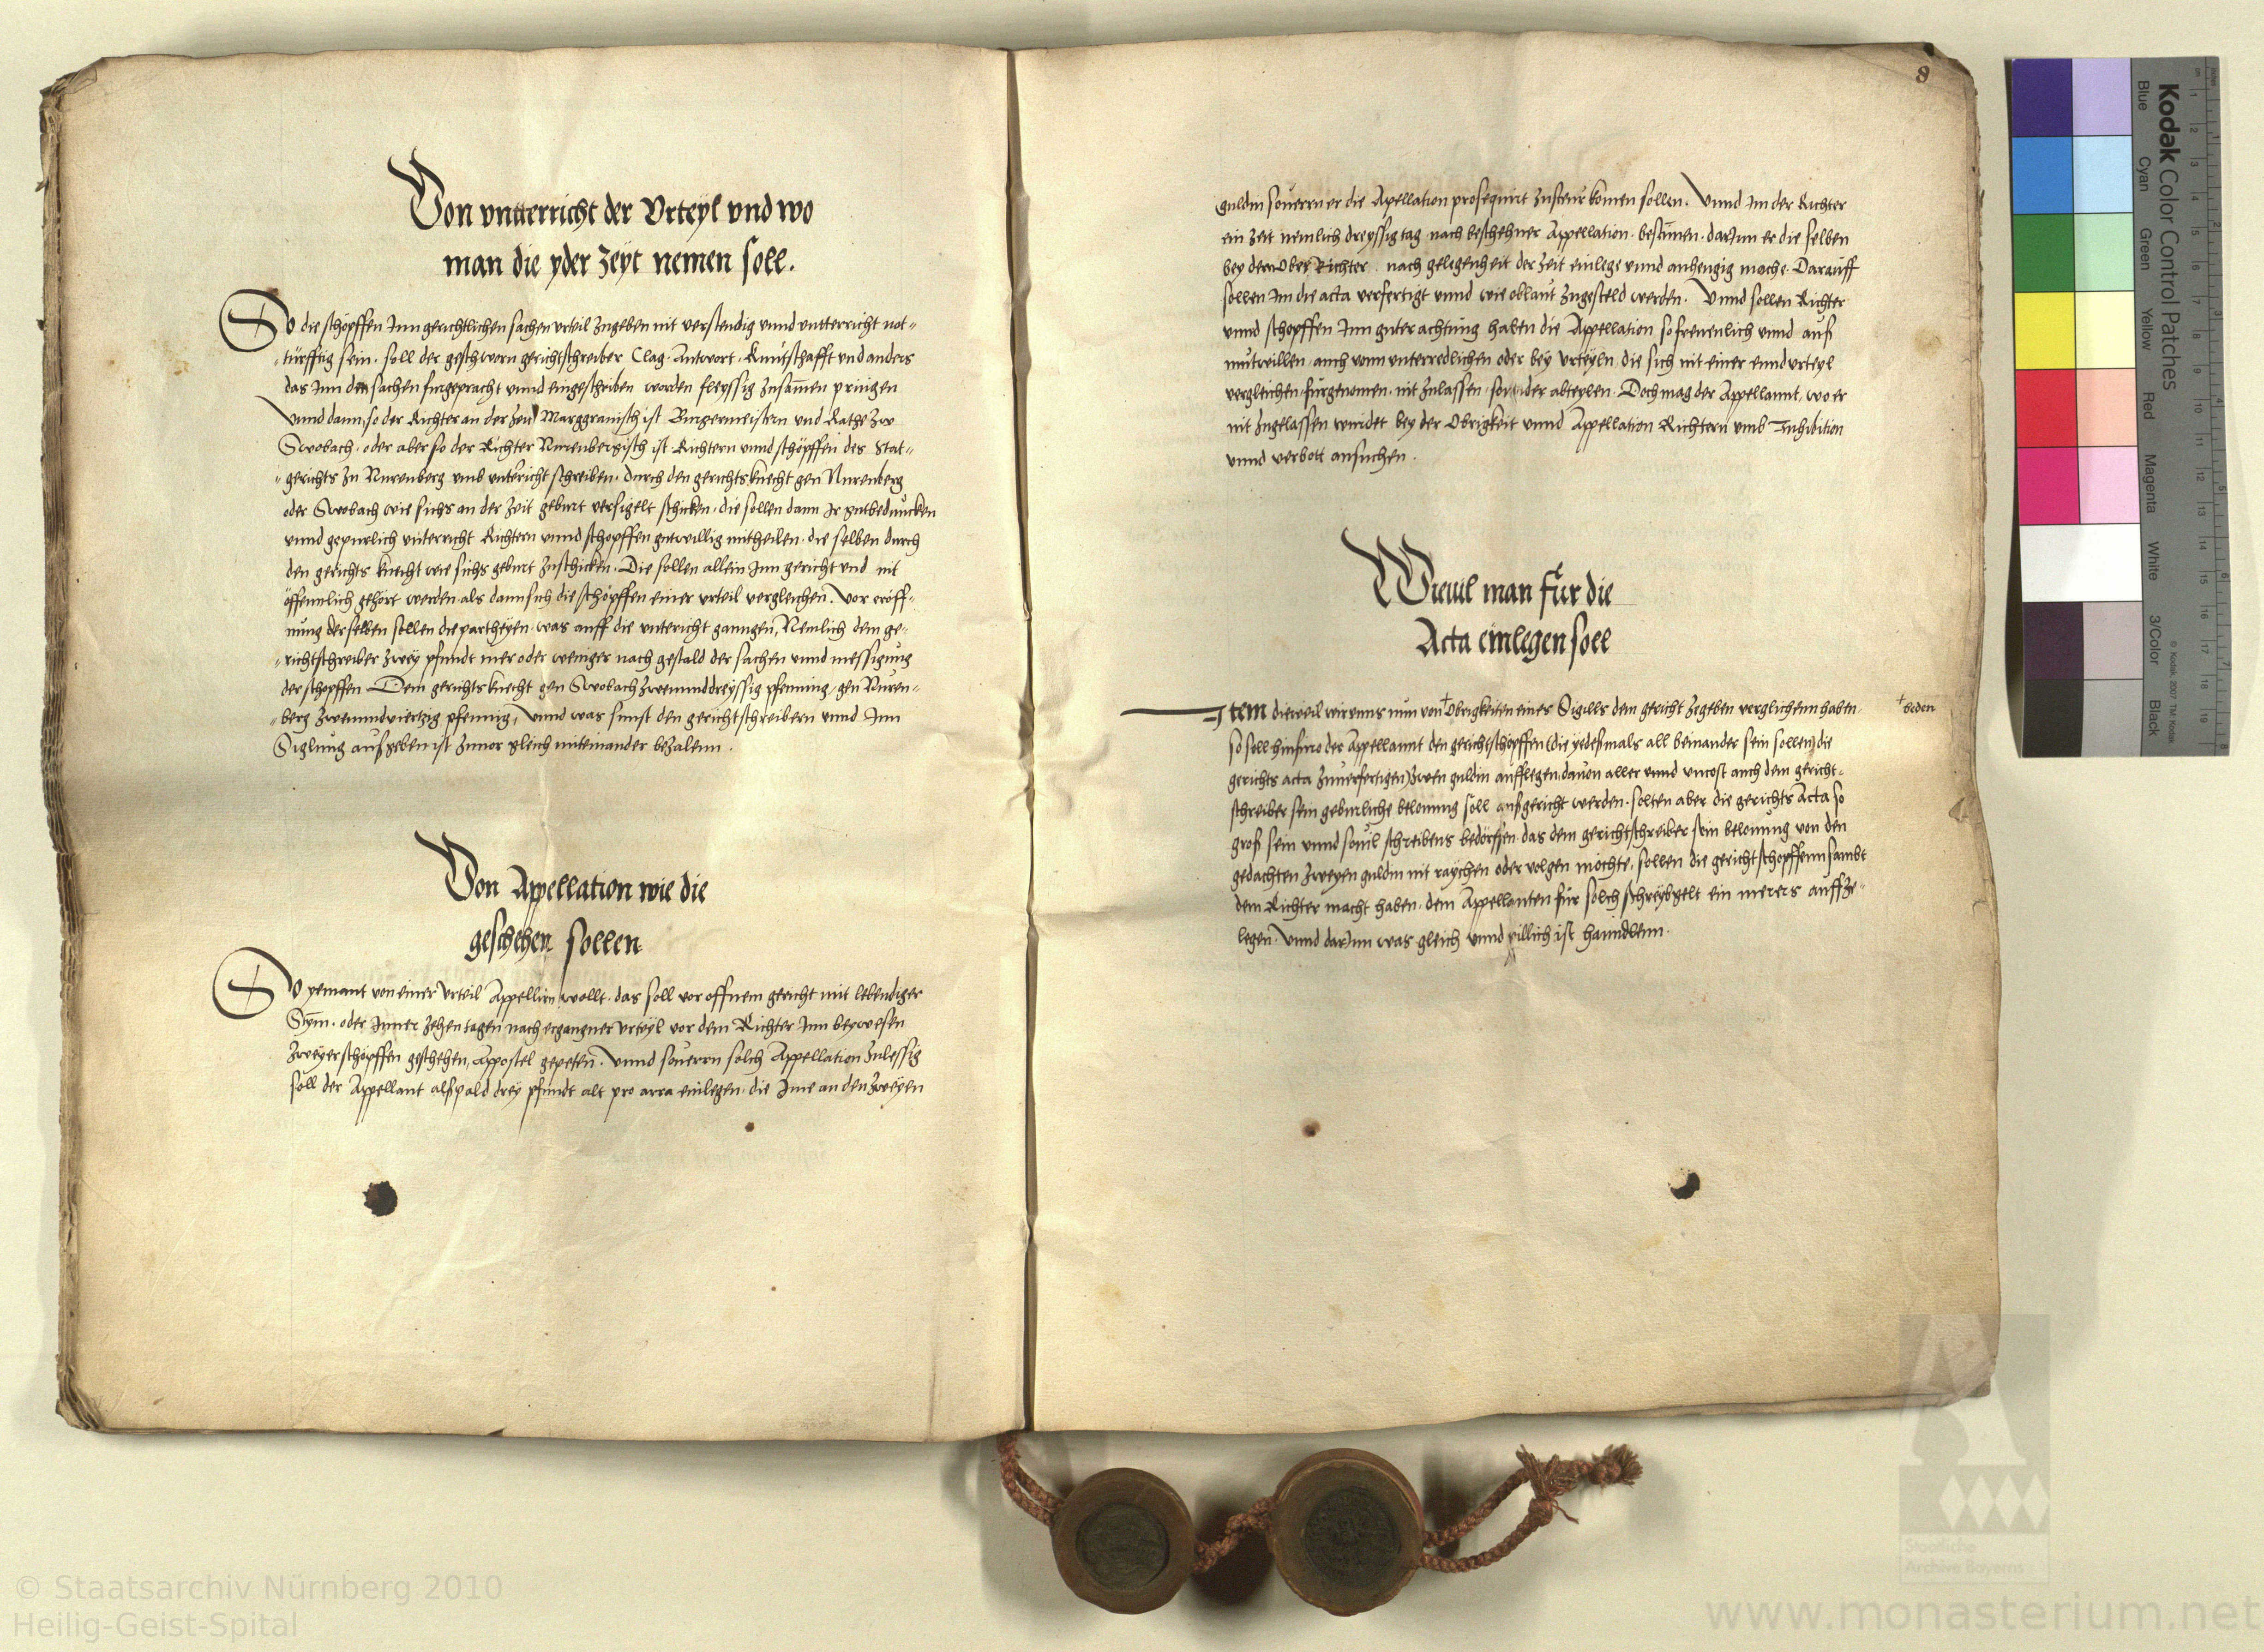 Von vntterricht der Vrteyl vnd wo
man die yder zeyt nemen soll.
So die schöpffen Inn gerichtlichen sachen vrteil zugeben nit verstendig vnnd vntterricht not-
-türfftig sein. soll der geschworn gerichtschreiber Clag. Antwort. Kuntschafft vnd anders
das Inn den sachen furgepracht vnnd eingeschriben worden fleyssig zusamen pringen
Vnnd dann, so der Richter an der zeyt Marggrauisch ist Burgermeistern vnd Rathe zw
Swobach. oder aber so der Richter Nurenbergisch ist Richtern vnnd schöpffen des Stat-
-gerichts zu Nurenberg vmb vntericht schreiben. durch den gerichtsknecht gen Nurenberg
oder Swobach wie sichs an der zeit geburt versigelt schicken. die sollen dann Ir gutbeduncken
vnnd gepurlich vnterricht Richtern vnnd schopffen gutwillig mittheilen. die selben durch
den gerichts knecht wie sichs geburt zuschicken. Die sollen allein Inn gericht vnd nit
öffennlich gehört werden. als dann sich die schöpffen einer vrteil vergleichen. Vor eröff-
nung derselben sollen die partheyen. was auff die vntericht ganngen, Nemlich dem ge-
-richtschreiber zwey pfundt mer oder weniger nach gestald der sachen vnnd messigung
der schopffen. Dem gerichts knecht gen Swobach zwenunddreyssig pfenning, gen Nuren-
-berg zwenundviertzig pfennig, Vnnd was sunst den gerichtschreibern vnnd Inn
Siglung auszgeben ist zuuor gleich miteinander bezalenn.
Von Appellation wie die
geschehen sollen
So yemant von einer Vrteil Appellirn wollt. das soll vor offnem gericht mit lebendiger
Stym. oder Inner zehen tagen nach ergangner vrteyl vor dem Richter Inn beywesen
zweyer schöpffen geschehen, Appostel gepeten. Vnnd souerrn solch Appellation zulessig
soll der Appellant alßpald drey pfundt alt pro arra einlegen. die Ime an den zweyen
8
guldin souerrn er die Apellation prosequirt zusteur komen sollen. Vnnd Im der Richter
ein zeit nemlich dreyssig tag nach beschehner Appellation. bestimen. darInn er die selben
bey dem Ober Richter. nach gelegenheit der zeit einlege vnnd anhengig mache. Darauff
sollen Im die acta verfertigt vnnd wie oblaut zugesteld werden. Vnnd sollen Richter
vnnd schopffen Inn guter achtung haben die Appellation so freuenlich vnnd auß
mutwillen. auch vonn vnterredlichen oder bey vrteyln. die sich nit einer ennd vrteyl
vergleichen. furgenomen. nit zulassen. sonnder abteylen. Doch mag der Appellannt, wo er
nit zugelassen wurdet bey der Obrigkeit vnnd Appellation Richtern vmb Inhibition
vnnd verbott ansuchen.
Wieuil man für die
Acta einlegen soll
Item dieweil wir vnns nun von + Obrigkeiten eines Sigills dem gericht zegeben verglichenn haben.
+ beden
so soll hinfuro der Appellannt den gerichtschöpffen (die yedeßmals all beinander sein sollen) die
gerichts acta zuuerfertigen) zwen guldin aufflegen. dauon aller vnnd vncost auch dem gericht-
schreiber sein geburliche belonung soll außgericht werden. solten aber die gerichts Acta so
groß sein vnnd souil schreibens bedörffen. das dem gerichtschreiber sein belonung von den
gedachten zweyen guldin nit raychen oder volgen möchte. sollen die gerichtschopffenn sambt
dem Richter macht haben. dem Appellanten für solch schreybgelt ein merers auffze-
legen. Vnnd darInn was gleich vnnd pillich ist hanndelnn.
Kodak Color Control Patches
Blue Cyan Green Yellow Red Magenta White 3/Color Black
© Kodak, 2007 TM: Kodak
© Staatsarchiv Nürnberg 2010
Heilig-Geist-Spital
Staatliche
Archive Bayerns
www.monasterium.net